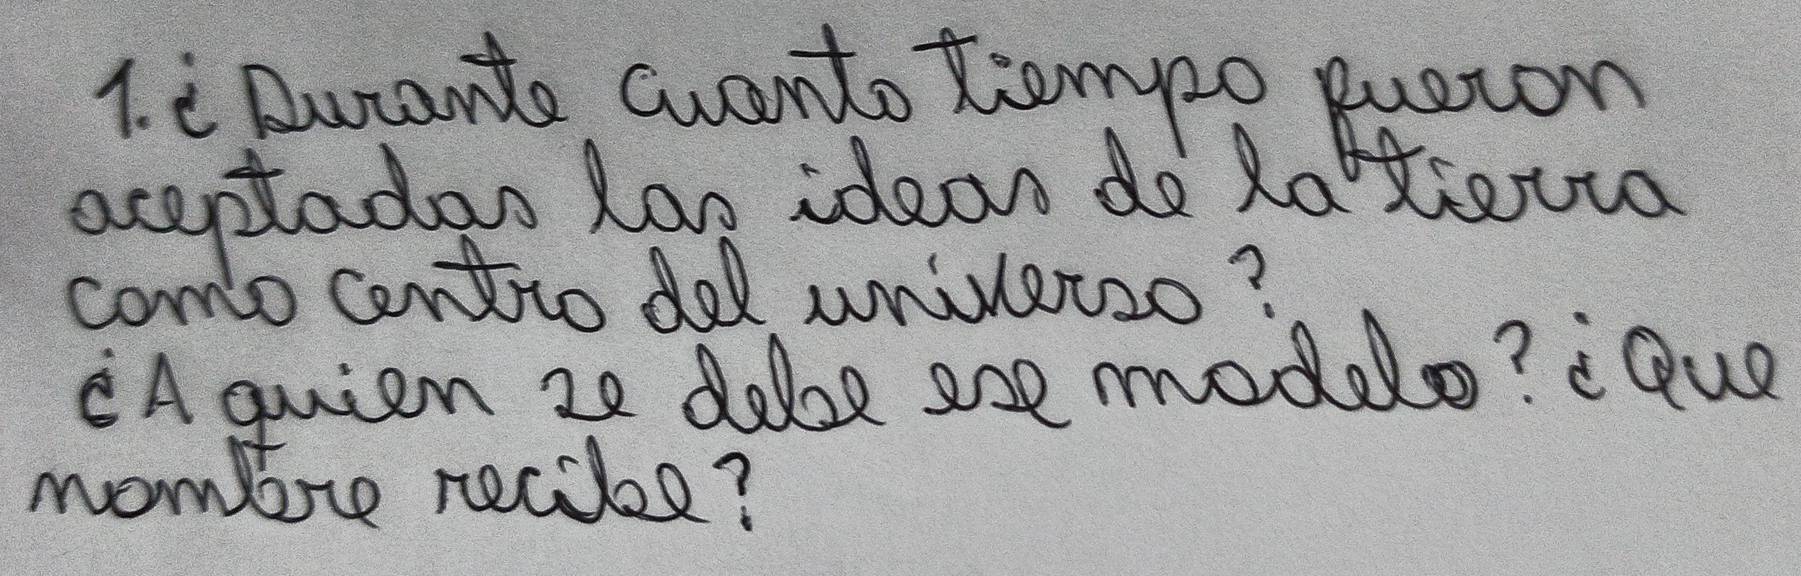 1. ¿Durante cuanto tiempo fueron
aceptadas las ideas de la tierra
como centro del universo?
¿A quien se debe ese modelo? ¿Que
nombre recibe?